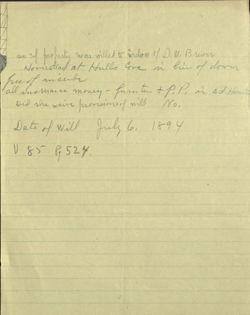 of property was willed to widow of D. W. Brewer
Homestead at Hulls Cove in lieu of dower
free of
all insurance money - furniture & P.P. in sd
Did she waive provisions of will No.
Date of Will July 6, 1894
V 85 P 524.